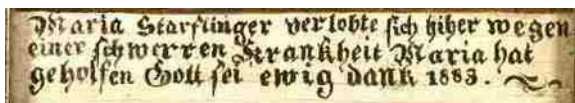 Maria Starflinger verlobte sich hiher wegen
einer schwerren Krankheit Maria hat
geholfen Gott sei ewig dank 1883.